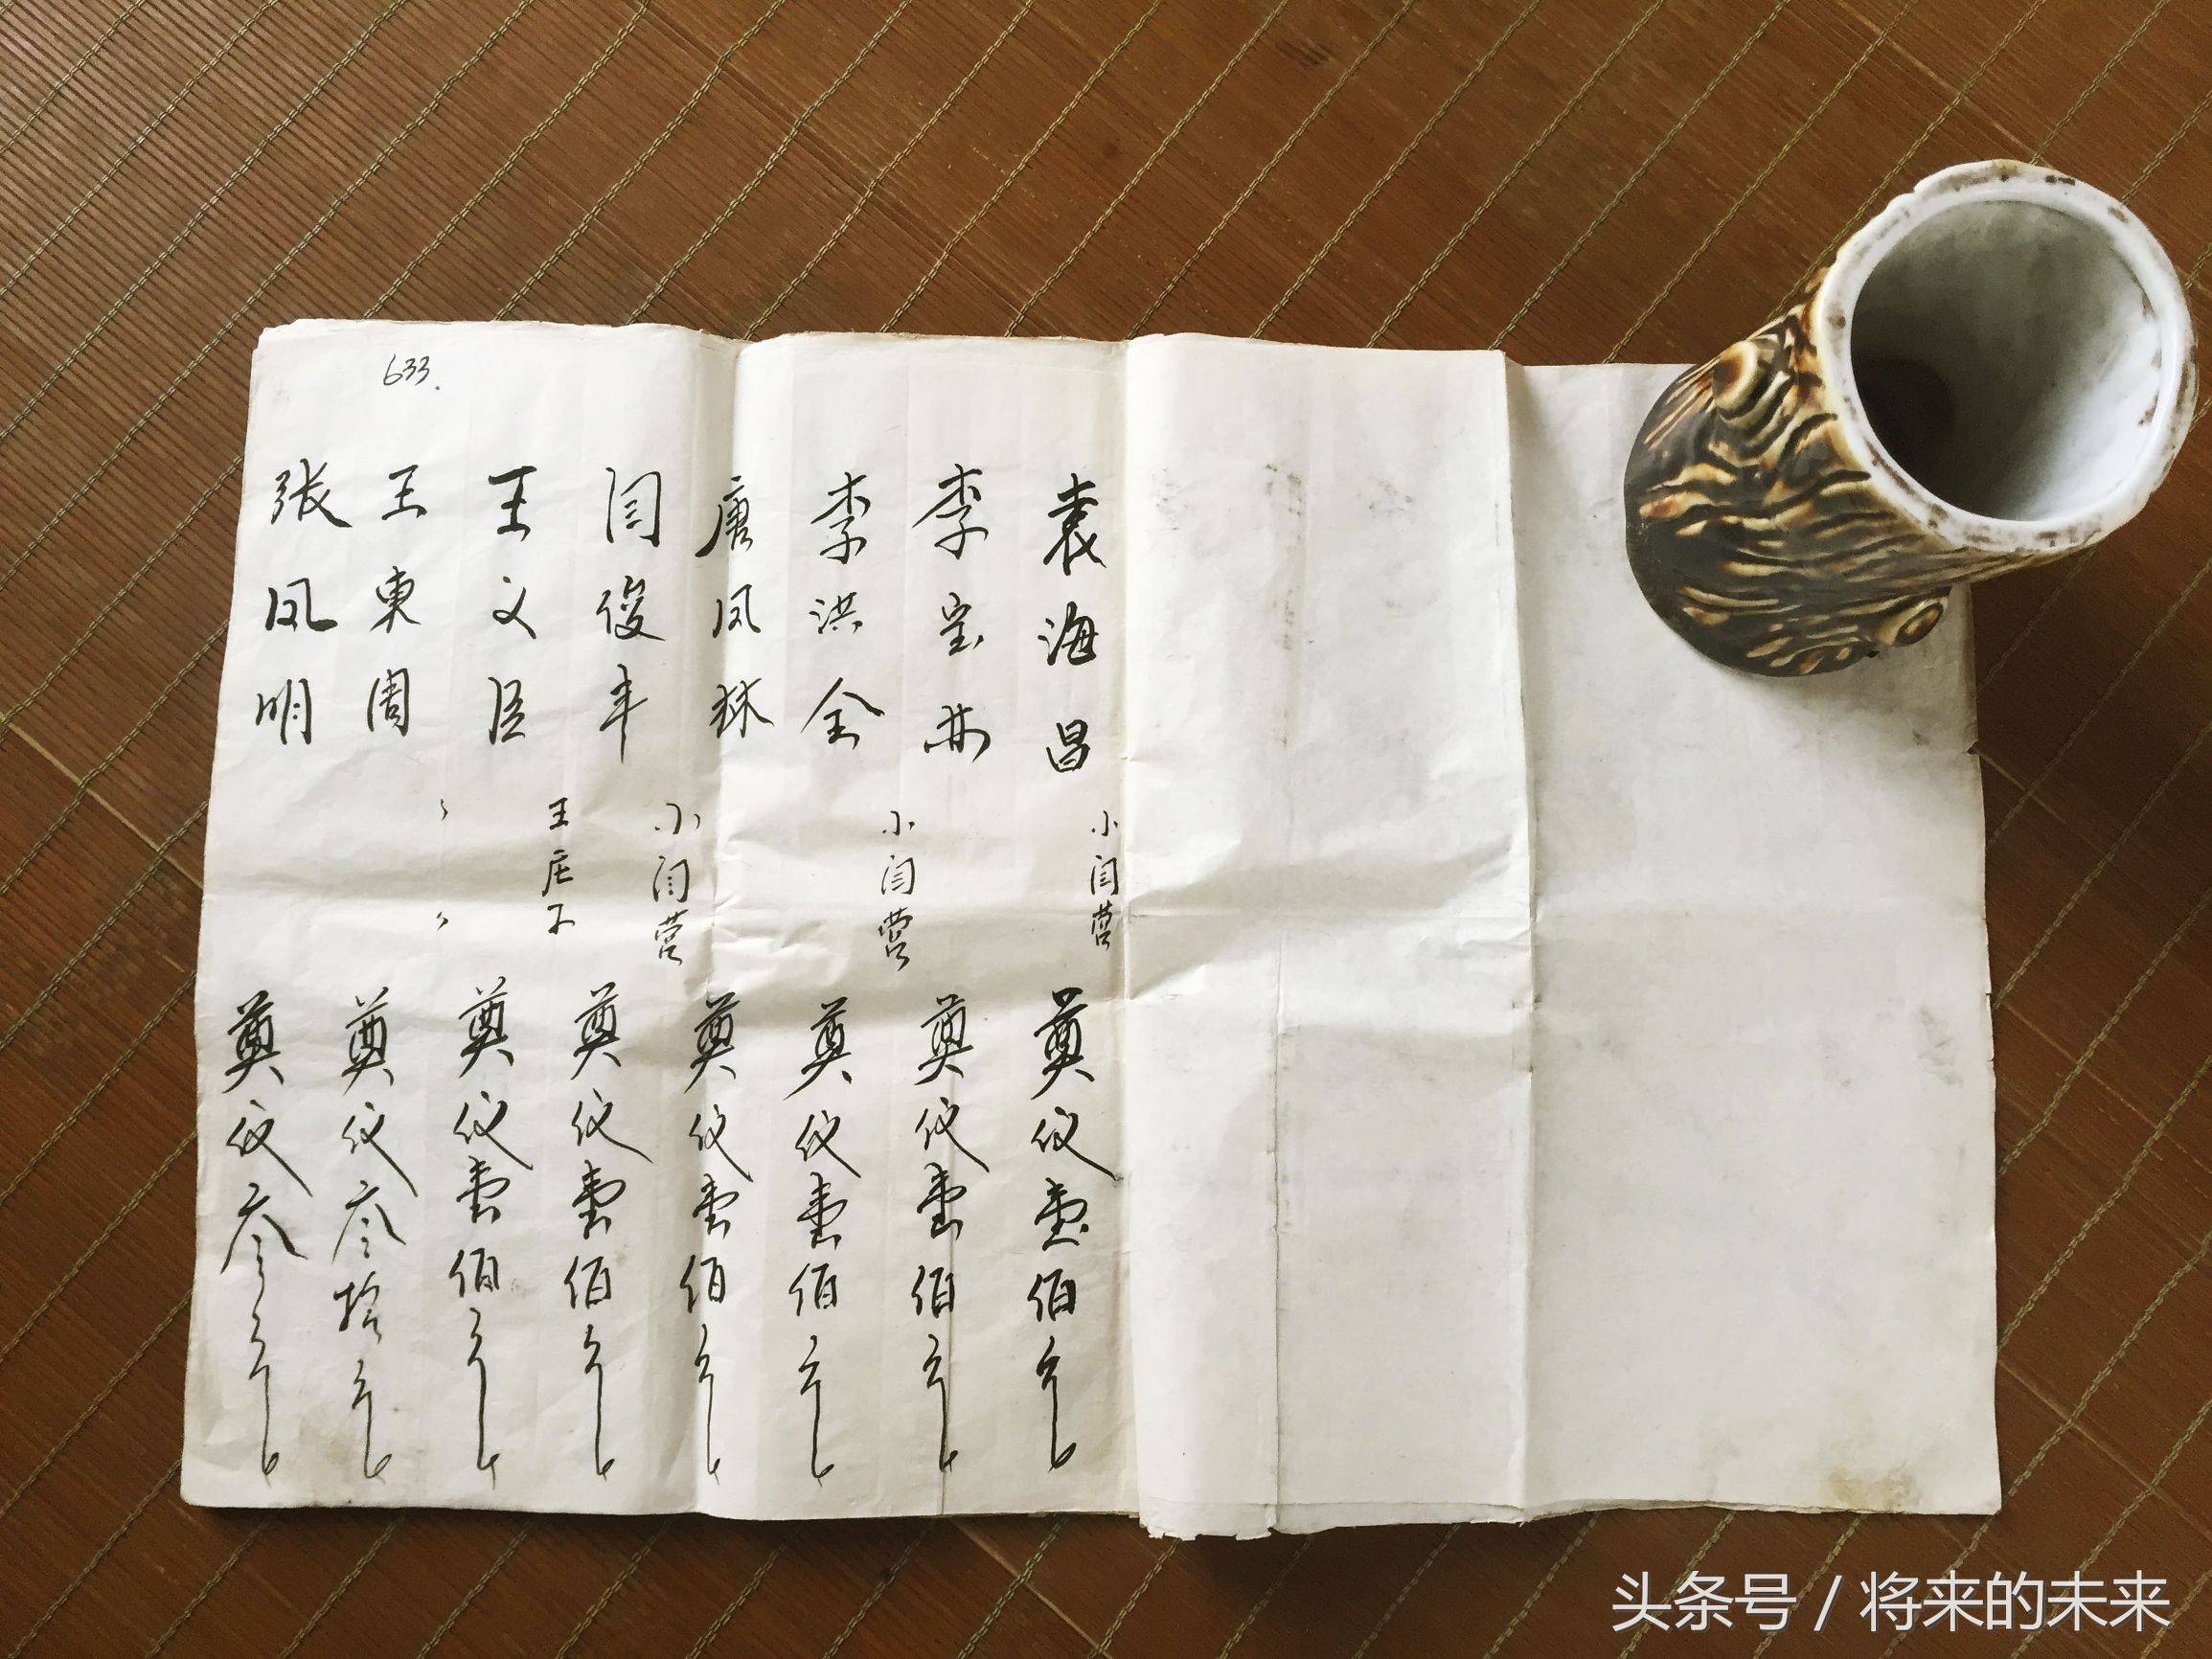 633.
袁海昌 小闫营 奠仪壹佰元
李宝 奠仪壹佰元
李洪全 小闫营 奠仪壹佰元
唐凤林 奠仪壹佰元
闫俊丰 小闫营 奠仪壹佰元
王文臣 王庄子 奠仪壹佰元
王東周 〃 〃 奠仪叁拾元
张凤明 奠仪叁元
头条号 / 将来的未来